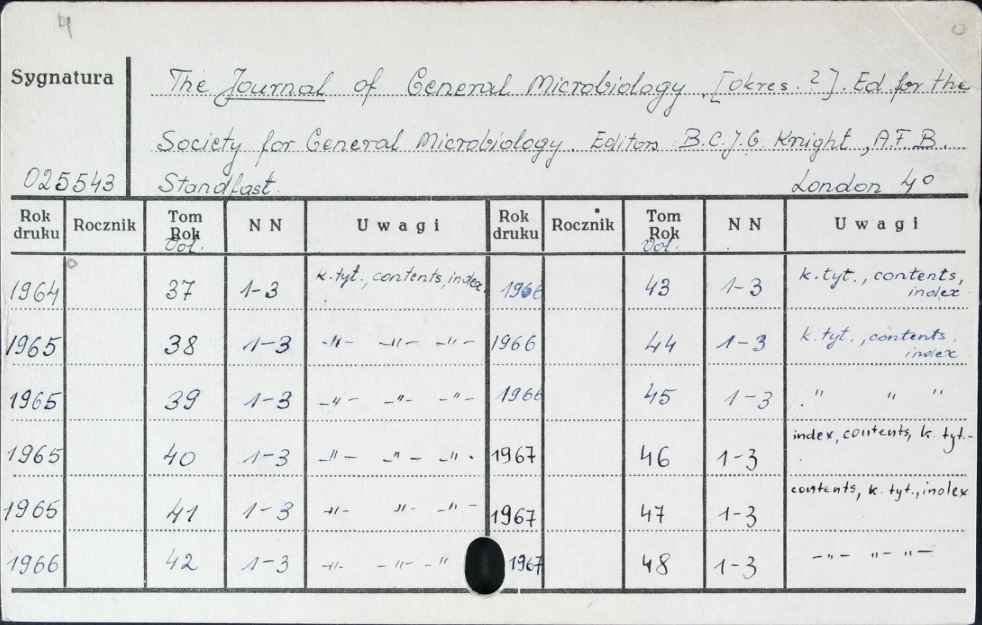 4
Sygnatura
The Journal of General Microbiology. [Okres. 2]. Ed. for the
Society for General Microbiology. Editors B.C.J.G. Knight, A.F.B.
025543 Standfast. London 4°
Rok druku Rocznik Tom Rok Vol. N N Uwagi Rok druku Rocznik Tom Rok Vol. N N Uwagi
1964 37 1-3 k. tyt., contents, index. 1966 43 1-3 k. tyt., contents, index
1965 38 1-3 -"- -"- -"- 1966 44 1-3 k. tyt., contents, index
1965 39 1-3 -"- -"- -"- 1966 45 1-3 " " "
1965 40 1-3 -"- -"- -"- 1967 46 1-3 index, contents, k. tyt.-
1965 41 1-3 -"- -"- -"- 1967 47 1-3 contents, k. tyt., index
1966 42 1-3 -"- -"- -"- 1967 48 1-3 -"- -"- -"-